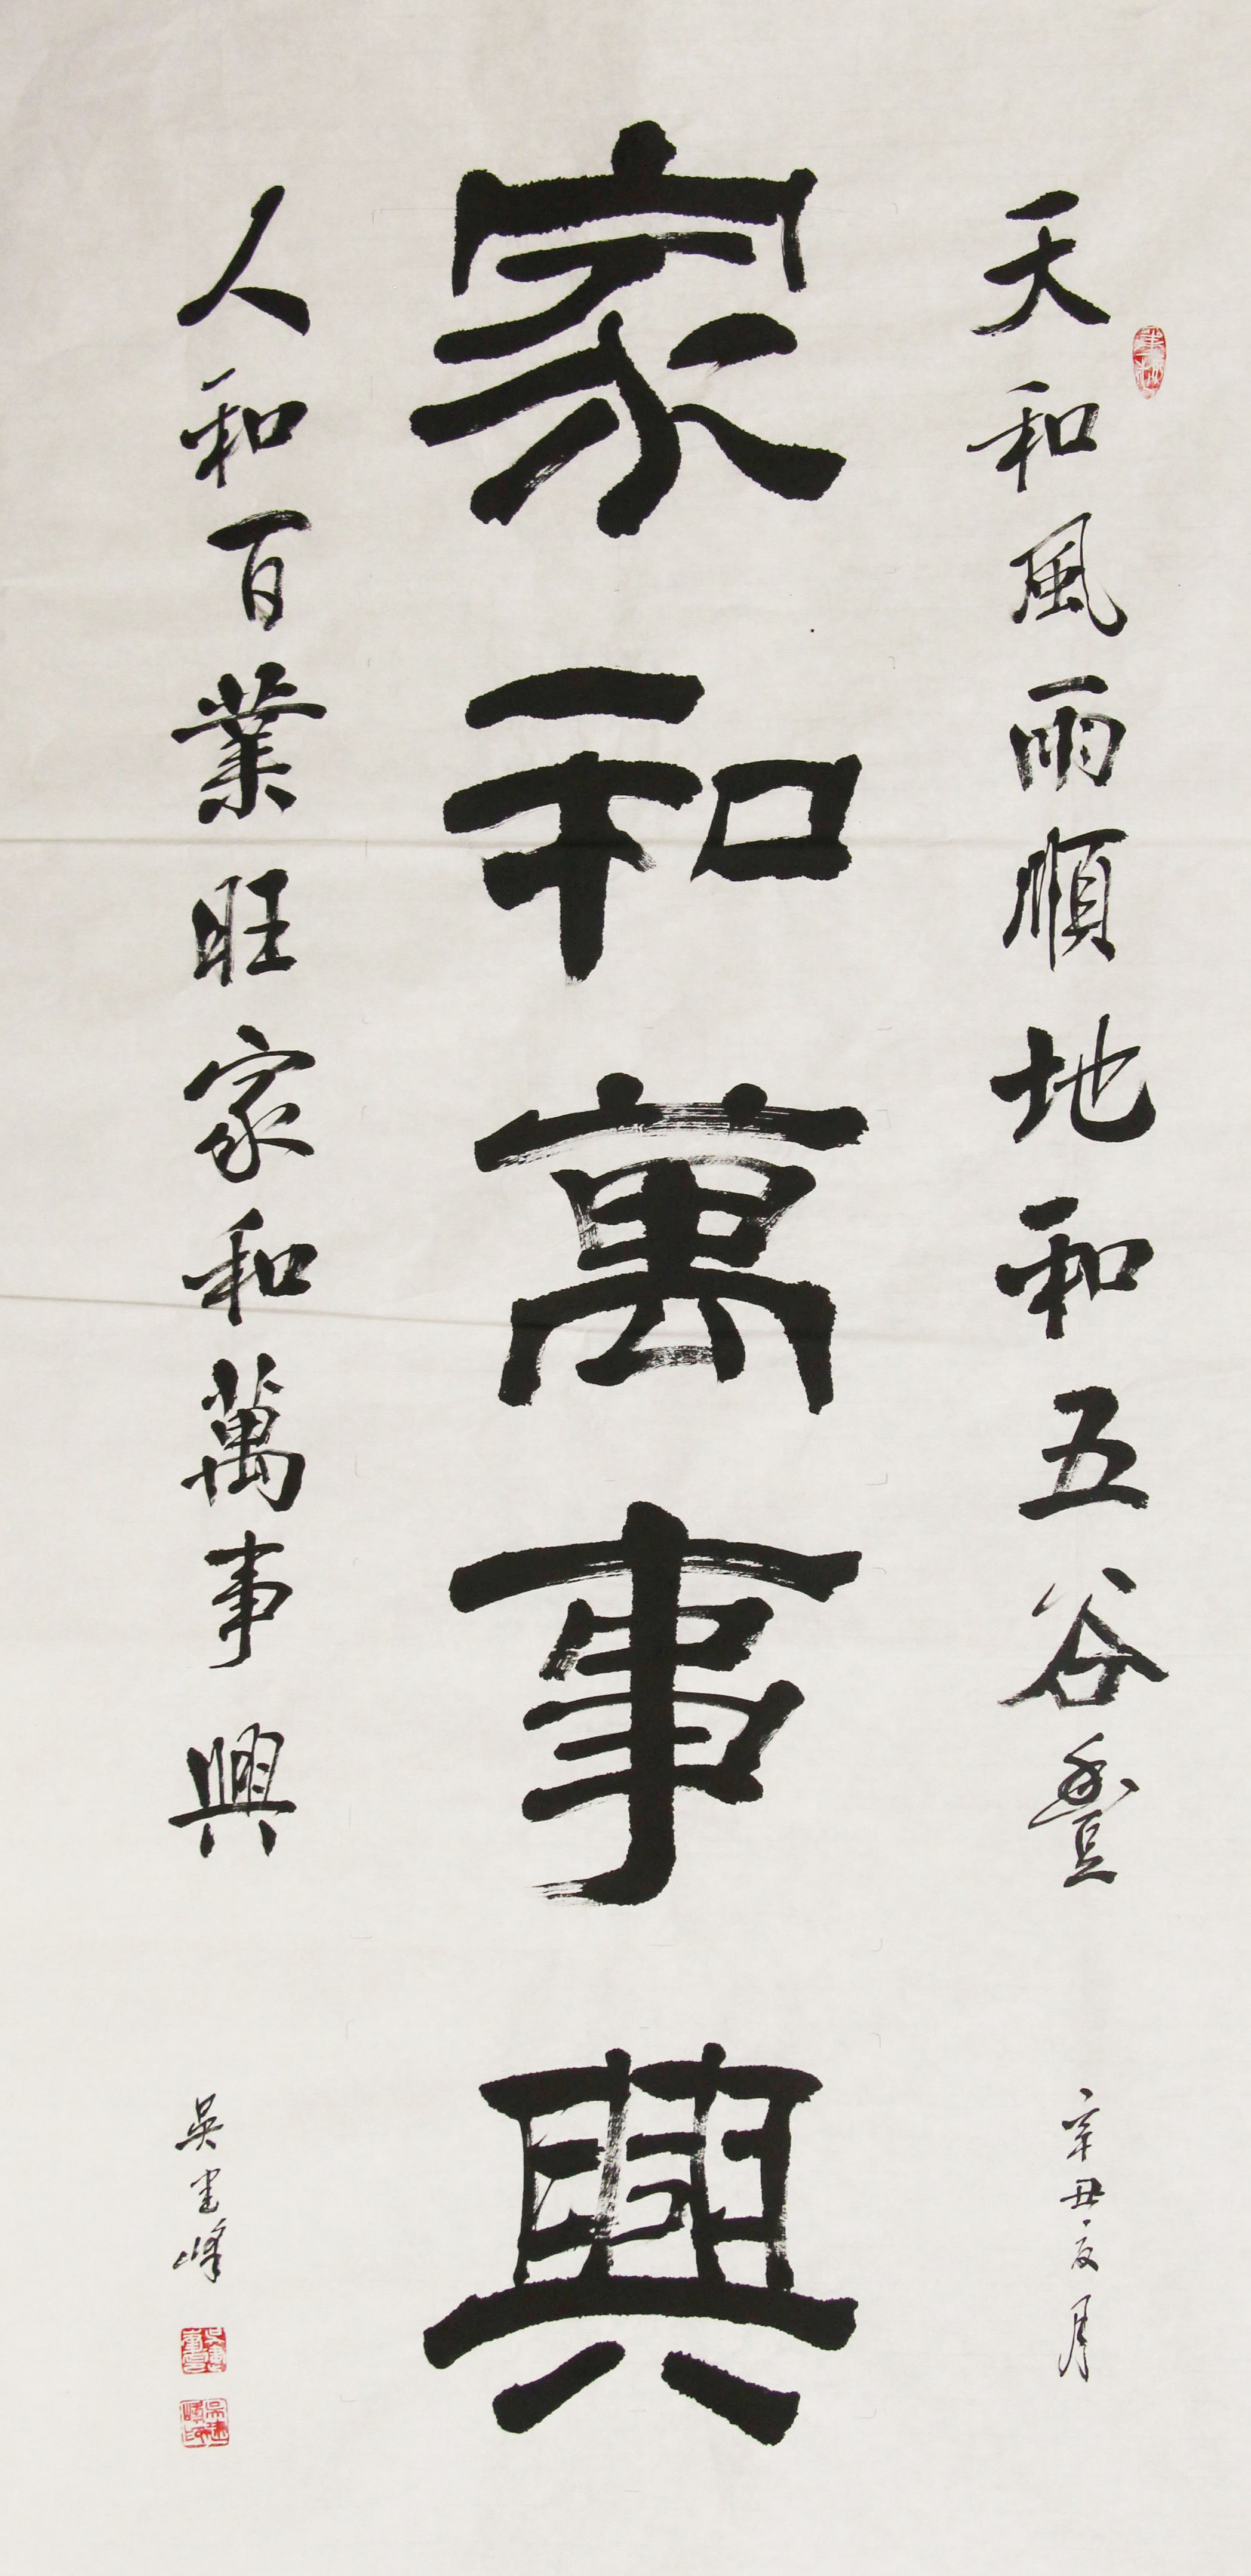 天和風雨順地和五谷豐
辛丑亥月
家和萬事興
人和百業旺家和萬事興
吳建峰